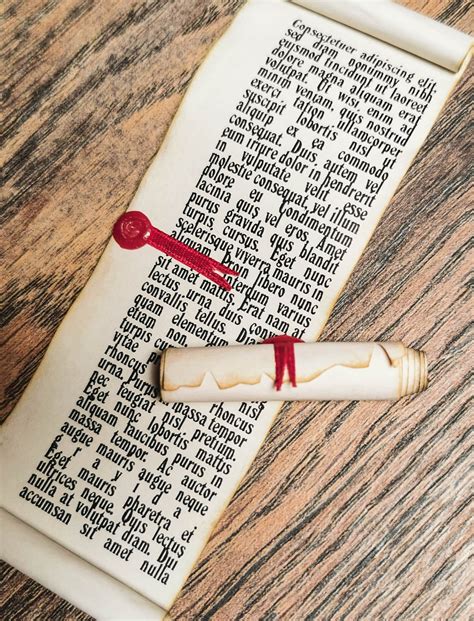 Consectetuer adipiscing elit,
sed diam nonummy nibh
euismod tincidunt ut laoreet
dolore magna aliquam erat
volutpat. Ut wisi enim ad
minim veniam, quis nostrud
exerci tation ullamcorper
suscipit lobortis nisl ut
aliquip ex ea commodo
consequat. Duis autem vel
eum iriure dolor in hendrerit
in vulputate velit esse
molestie consequat, vel illum
dolore eu Condimentum
lacinia quis vel eros. Amet
purus gravida quis blandit
turpis cursus. Eget nunc
scelerisque viverra mauris in
aliquam. Proin libero nunc
sit amet mattis. Erat nam at
lectus urna duis
convallis tellus. Diam
quam elementum
turpis cursus
vitae
rhoncus
urna. Purus massa tempor
nec feugiat nisl pretium.
Eget nunc lobortis mattis
aliquam faucibus purus in
massa tempor. Ac auctor
augue mauris augue neque
gravida
Eget mauris pharetra et
ultrices neque. Quis lectus
nulla at volutpat diam. Dui
accumsan sit amet nulla